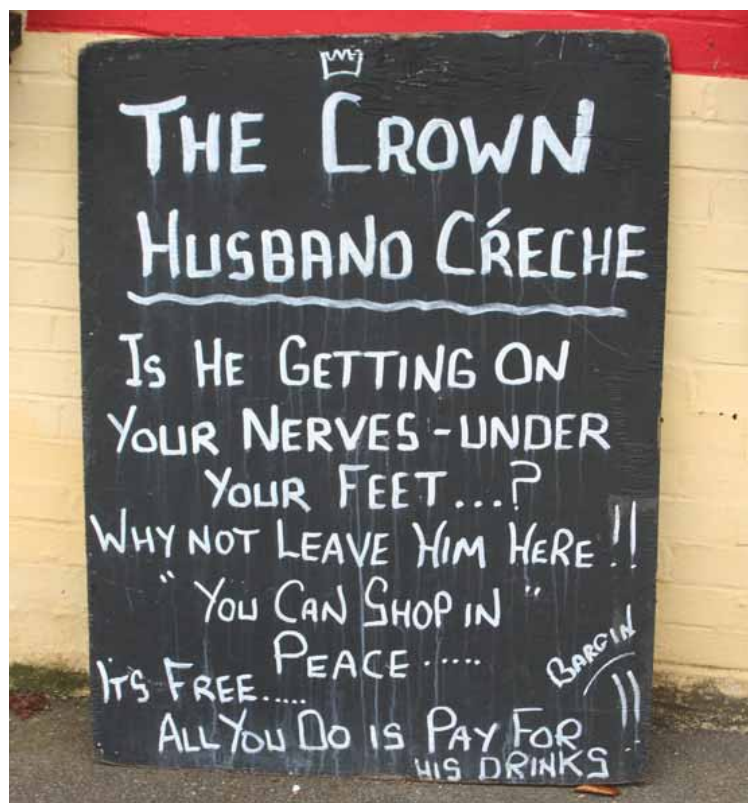 THE CROWN
HUSBAND CŔECHE
IS HE GETTING ON
YOUR NERVES - UNDER
YOUR FEET...?
WHY NOT LEAVE HIM HERE!!
"YOU CAN SHOP IN"
PEACE.....
ITS FREE.....
BARGIN!!
ALL YOU DO IS PAY FOR
HIS DRINKS